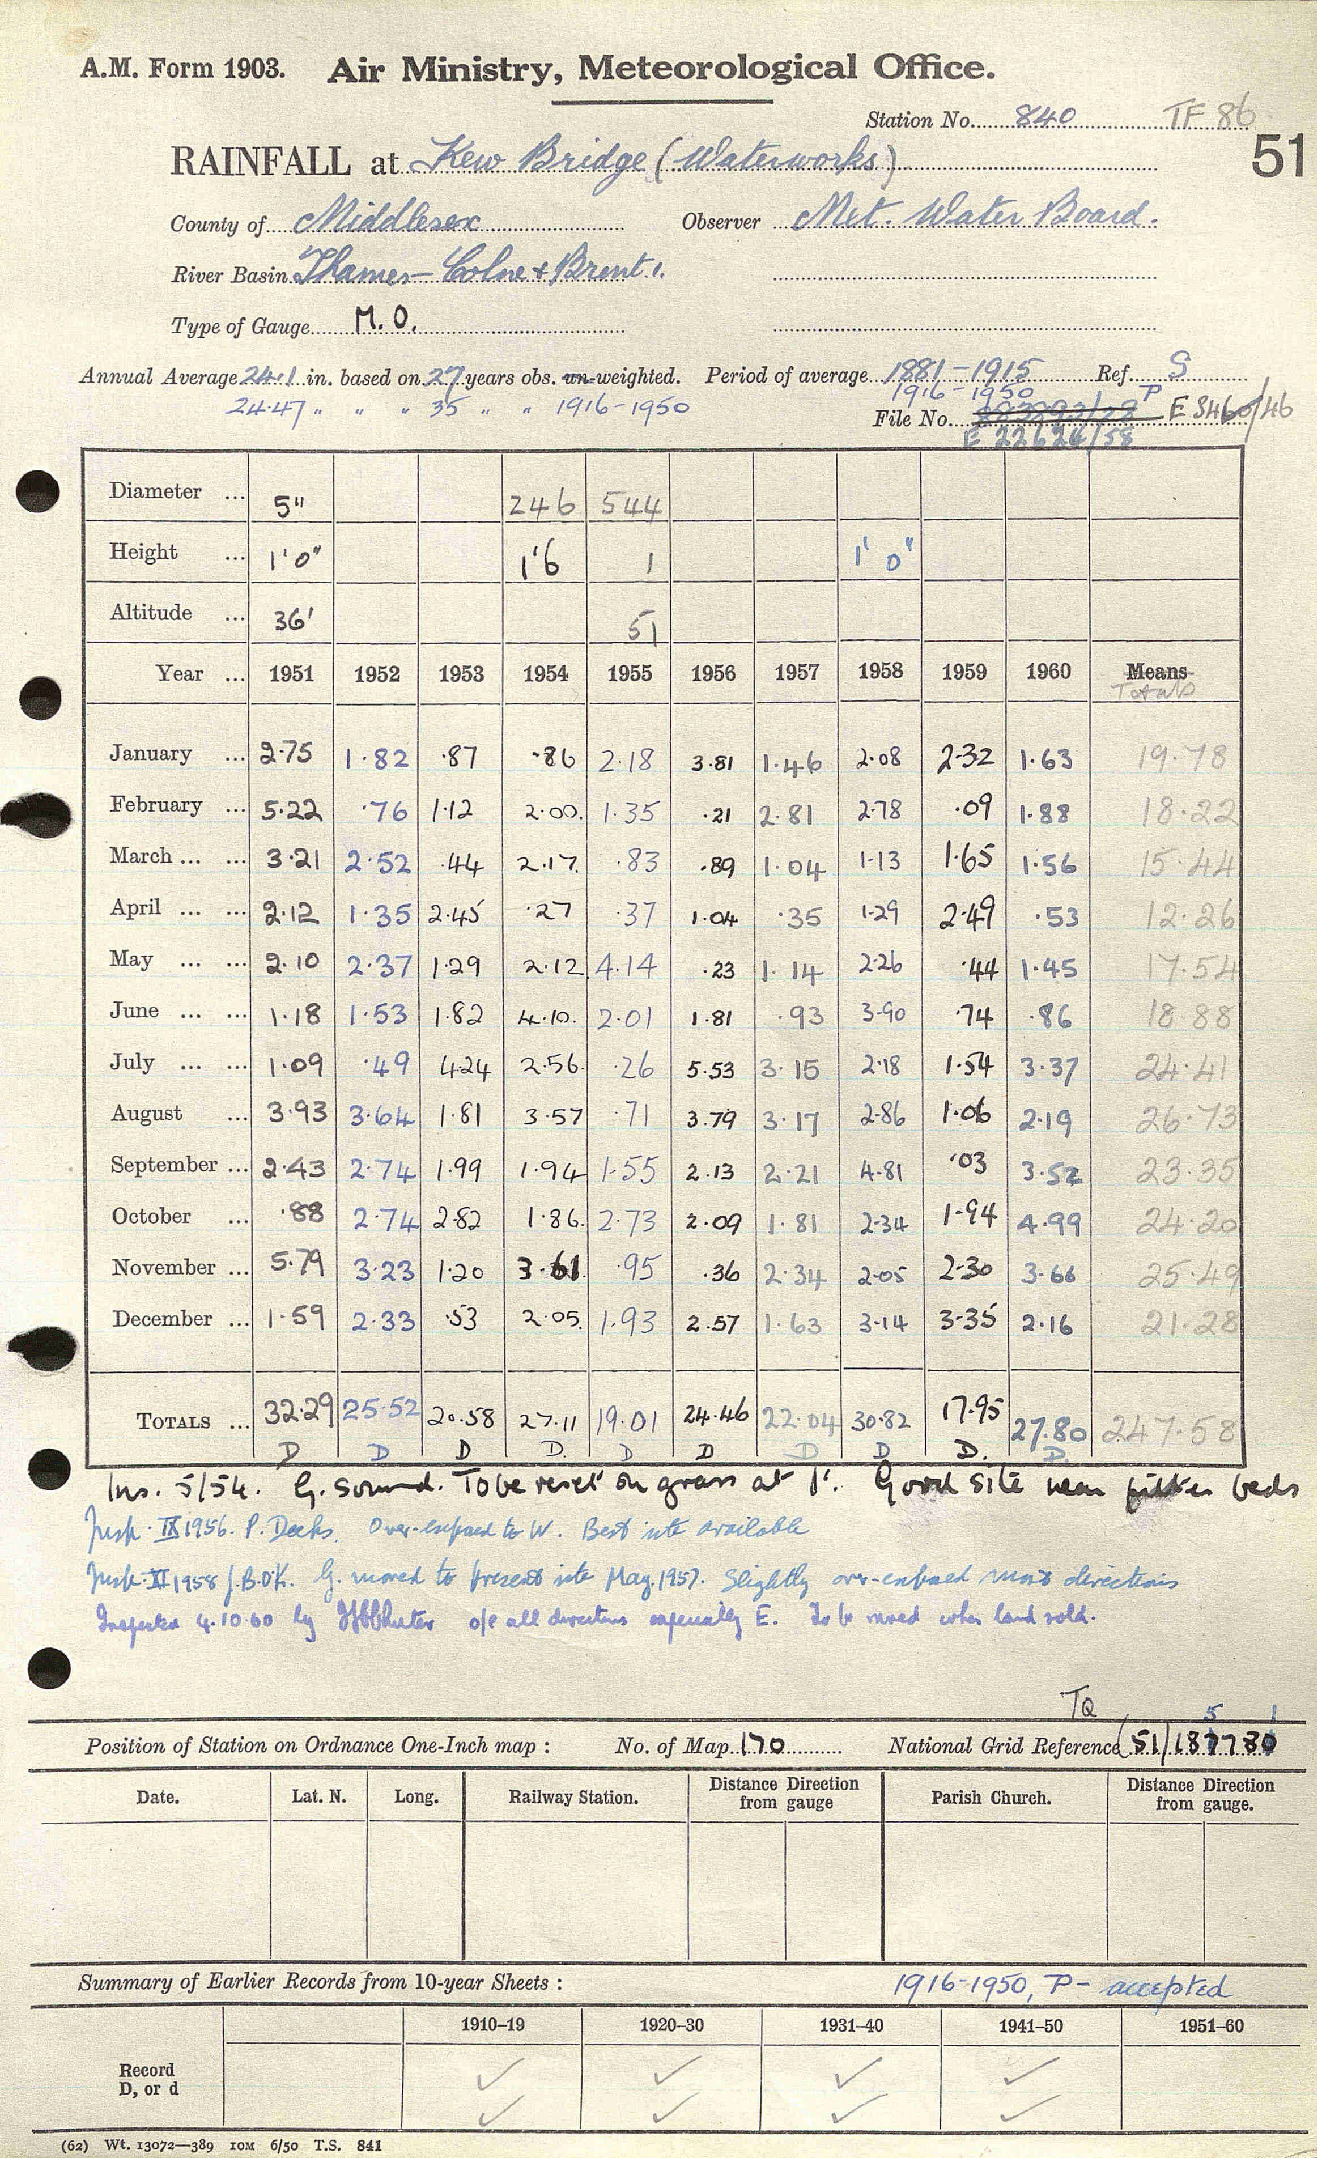 A.M. Form 1903. Air Ministry, Meteorological Office.
Station No. 840 TF 86
51
RAINFALL at Kew Bridge (Waterworks)
County of Middlesex Observer Met. Water Board.
River Basin Thames – Colne & Brent.
Type of Gauge M.O.
Annual Average 24.1 in. based on 27 years obs. un-weighted. Period of average 1881-1915 Ref. S
24.47 " " " 35 " " 1916-1950 1916-1950 P
File No. E 3460/46
E 22626/58
Diameter ... 5" 246 544
Height ... 1'0" 1'6 1 1'0"
Altitude ... 36' 51
Year ... 1951 1952 1953 1954 1955 1956 1957 1958 1959 1960 Means
Totals
January ... 2.75 1.82 .87 .86 2.18 3.81 1.46 2.08 2.32 1.63 19.78
February ... 5.22 .76 1.12 2.00 1.35 .21 2.81 2.78 .09 1.88 18.22
March ... ... 3.21 2.52 .44 2.17 .83 .89 1.04 1.13 1.65 1.56 15.44
April ... ... 2.12 1.35 2.45 .27 .37 1.04 .35 1.29 2.49 .53 12.26
May ... ... 2.10 2.37 1.29 2.12 4.14 .23 1.14 2.26 .44 1.45 17.54
June ... ... 1.18 1.53 1.82 4.10 2.01 1.81 .93 3.90 .74 .86 18.88
July ... ... 1.09 .49 4.24 2.56 .26 5.53 3.15 2.18 1.54 3.37 24.41
August ... 3.93 3.64 1.81 3.57 .71 3.79 3.17 2.86 1.06 2.19 26.73
September ... 2.43 2.74 1.99 1.94 1.55 2.13 2.21 4.81 .03 3.52 23.35
October ... .88 2.74 2.82 1.86 2.73 2.09 1.81 2.34 1.94 4.99 24.20
November ... 5.79 3.23 1.20 3.61 .95 .36 2.34 2.05 2.30 3.66 25.49
December ... 1.59 2.33 .53 2.05 1.93 2.57 1.63 3.14 3.35 2.16 21.28
TOTALS ... 32.29 25.52 20.58 27.11 19.01 24.46 22.04 30.82 17.95 27.80 247.58
D D D D. D D D D D. D.
Ins. 5/54. G. sound. To be reset on grass at 1'. Good site near filter beds
Insp. IX 1956. P. Deeks. Over-exposed to W. Best site available
Insp. XI 1958 J.B.O'K. G. moved to present site May, 1957. Slightly over-exposed most directions
Inspected 4.10.60 by o/e all directions especially E. To be moved when land sold.
TQ 5 1
Position of Station on Ordnance One-Inch map : No. of Map 170 National Grid Reference (51)/187780
Date. Lat. N. Long. Railway Station. Distance Direction from gauge Parish Church. Distance Direction from gauge.
Summary of Earlier Records from 10-year Sheets : 1916-1950, P- accepted
1910–19 1920–30 1931–40 1941–50 1951–60
Record ✓ ✓ ✓ ✓
D, or d ✓ ✓ ✓ ✓
(62) Wt. 13072—389 10M 6/50 T.S. 841